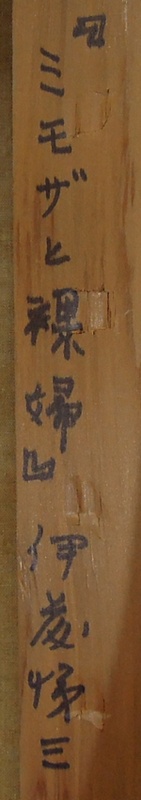 『ミモザと裸婦』 伊藤悌三